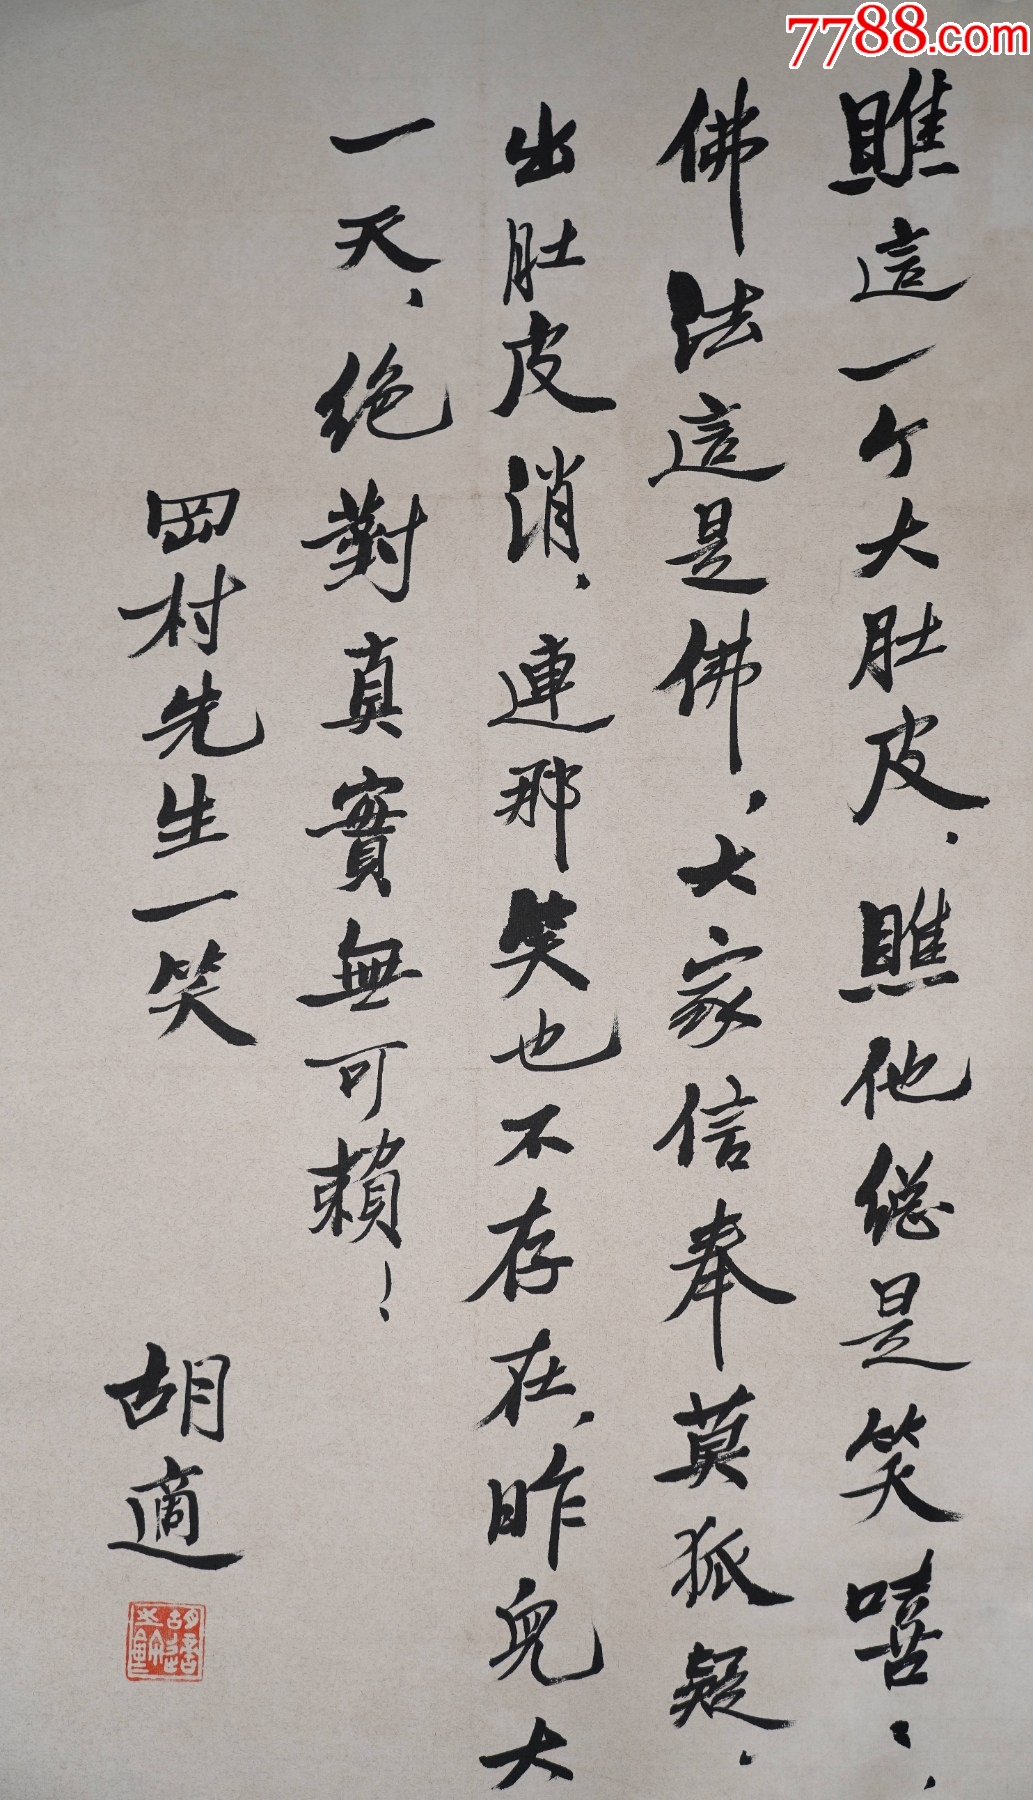 7788.com
瞧這一个大肚皮,瞧他總是笑嘻々,
佛法這是佛,大家信奉莫狐疑,
出肚皮消,連那笑也不存在,昨兒大
一天,絕對真實無可賴!
岡村先生一笑
胡適